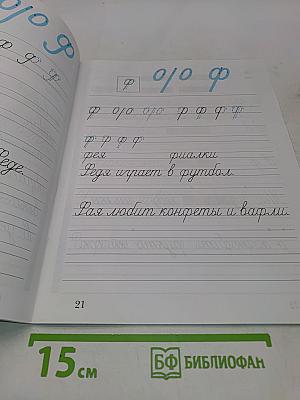 Ф
Ф Ф Ф
Феде.
ф о/о ф
ф о/о о/о ф ф ф ф
ф ф ф ф
фея фиалки
Федя играет в футбол.
Рая любит конфеты и вафли.
21
15 см БФ БИБЛИОФАН